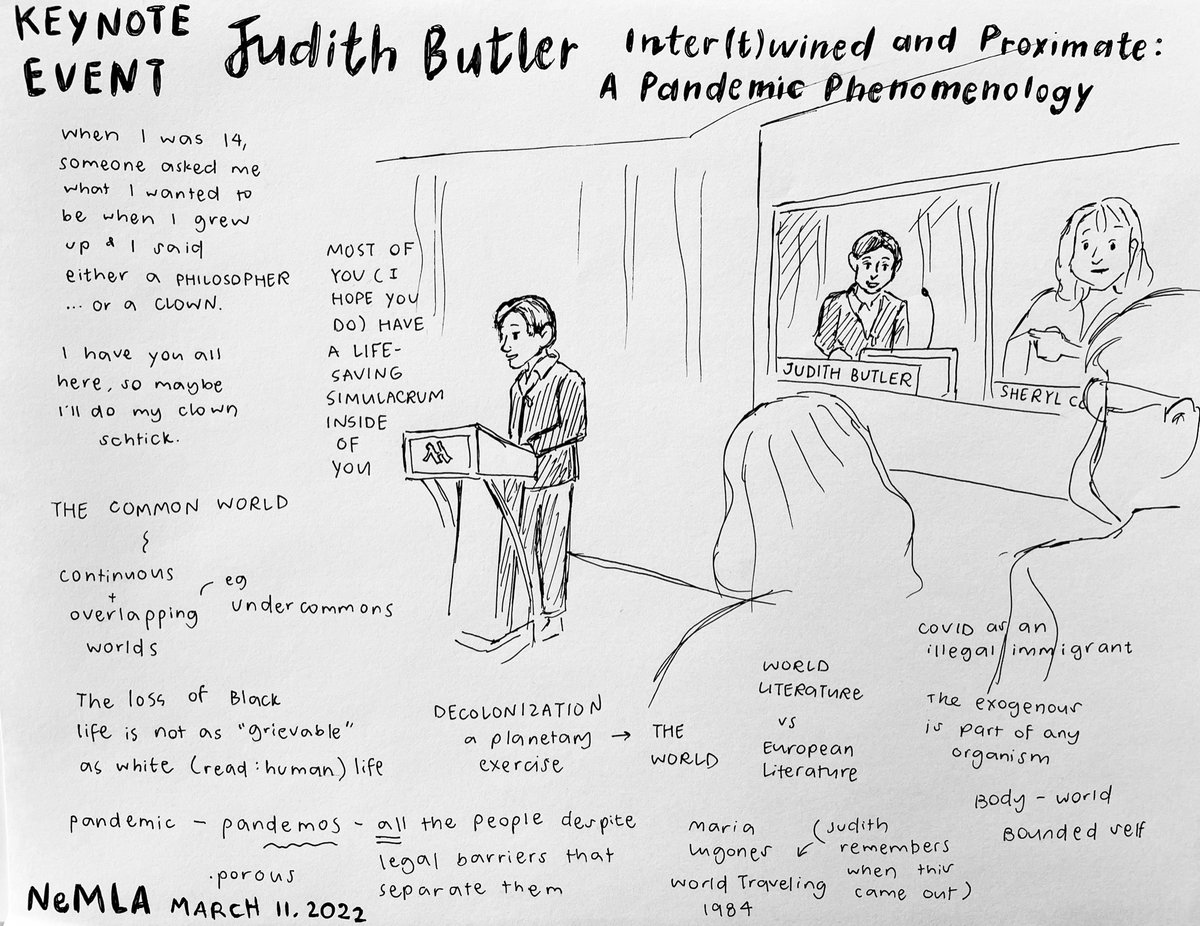 KEYNOTE
EVENT
Judith Butler
Inter(t)wined and Proximate:
A Pandemic Phenomenology
when I was 14,
someone asked me
what I wanted to
be when I grew
up & I said
either a PHILOSOPHER
... or a CLOWN.
I have you all
here, so maybe
I'll do my clown
schtick.
MOST OF
YOU (I
HOPE YOU
DO) HAVE
A LIFE-
SAVING
SIMULACRUM
INSIDE
OF
YOU
JUDITH BUTLER
SHERYL
THE COMMON WORLD
continuous
+
overlapping
worlds
eg
undercommons
The loss of Black
life is not as "grievable"
as white (read: human) life
DECOLONIZATION
a planetary
exercise
→ THE
WORLD
WORLD
LITERATURE
vs
European
Literature
COVID as an
illegal immigrant
The exogenous
is part of any
organism
Body - world
Bounded self
pandemic - pandemos - all the people despite
legal barriers that
separate them
.porous
maria
lugones
world Traveling
1984
(Judith
remembers
when this
came out)
NeMLA MARCH 11.2022